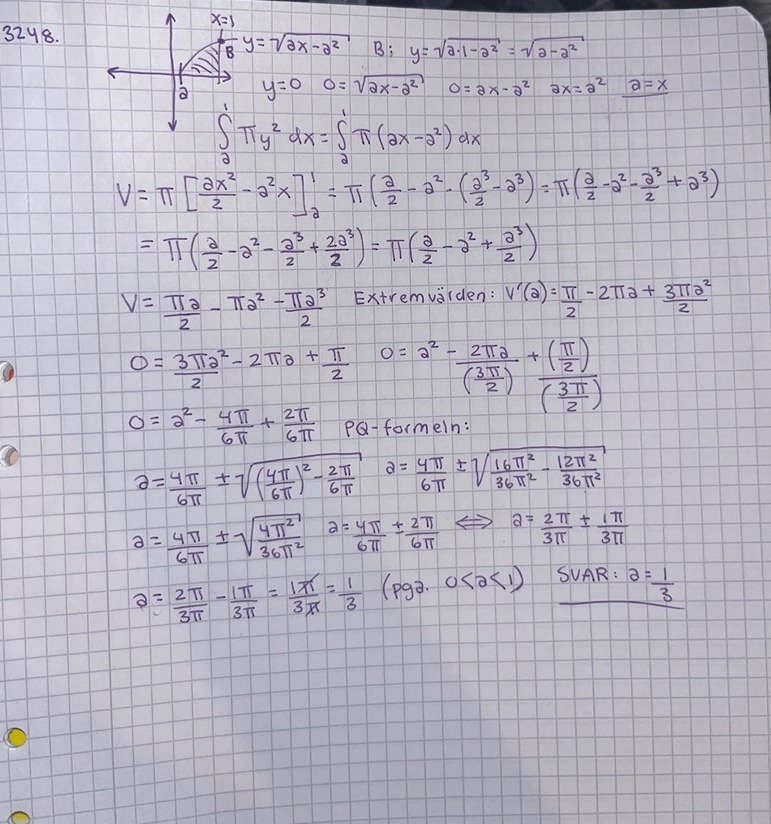 3248.
x=1
B
a
y=√(ax-a²) B: y=√(a·1-a²) = √(a-a²)
y=0 0=√(ax-a²) 0=ax-a² ax=a² a=x
∫ₐ¹ πy² dx = ∫ₐ¹ π(ax-a²) dx
V = π [ax²/2 - a²x]ₐ¹ = π(a/2 - a² - (a³/2 - a³) = π(a/2 - a² - a³/2 + a³)
= π(a/2 - a² - a³/2 + 2a³/2) = π(a/2 - a² + a³/2)
V = πa/2 - πa² - πa³/2 Extremvärden: V'(a) = π/2 - 2πa + 3πa²/2
0 = 3πa²/2 - 2πa + π/2 0 = a² - 2πa/(3π/2) + (π/2)/(3π/2)
0 = a² - 4π/6π + 2π/6π PQ-formeln:
a = 4π/6π ± √((4π/6π)² - 2π/6π) a = 4π/6π ± √(16π²/36π² - 12π²/36π²)
a = 4π/6π ± √(4π²/36π²) a = 4π/6π ± 2π/6π ⟺ a = 2π/3π ± 1π/3π
a = 2π/3π - 1π/3π = 1π/3π = 1/3 (pga. 0<a<1) SVAR: a = 1/3